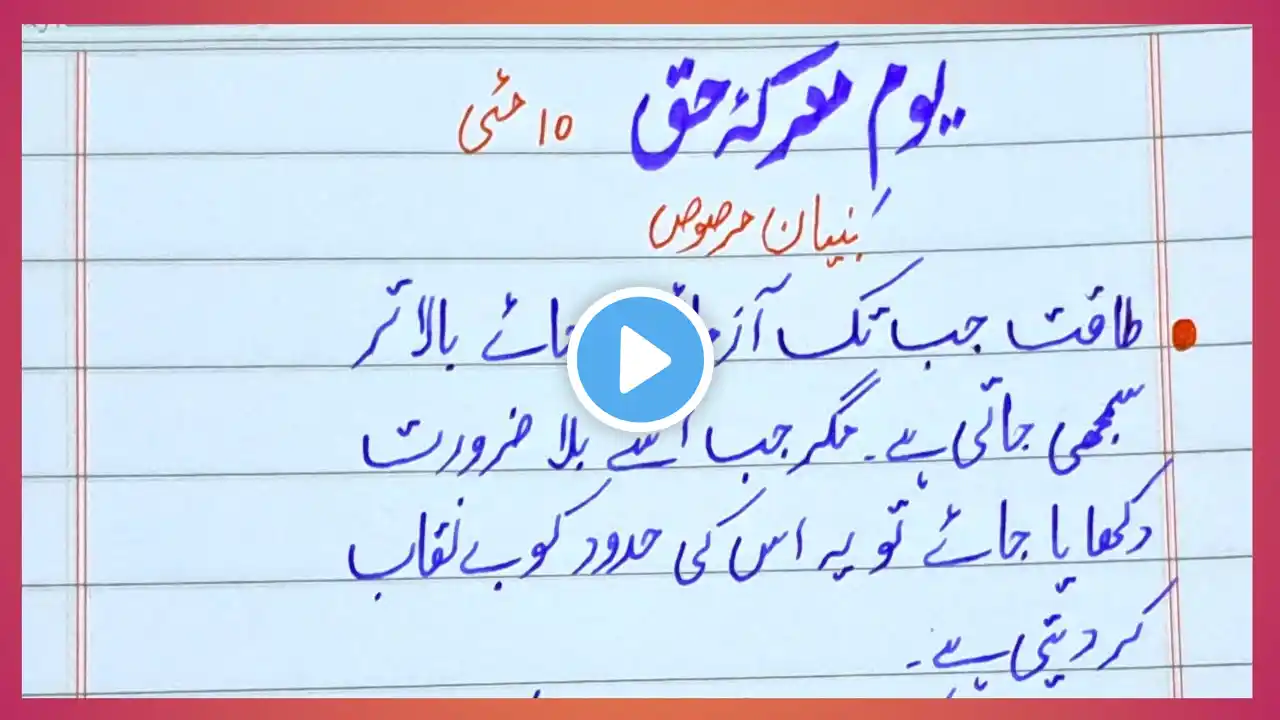 یومِ معرکۂ حق ۱۰ مئی
بُنیان مرصوص
طاقت جب تک بالا تر
سمجھی جاتی ہے۔ مگر جب اسے بلا ضرورت
دکھایا جائے تو یہ اس کی حدود کو بے نقاب
کر دیتی ہے۔